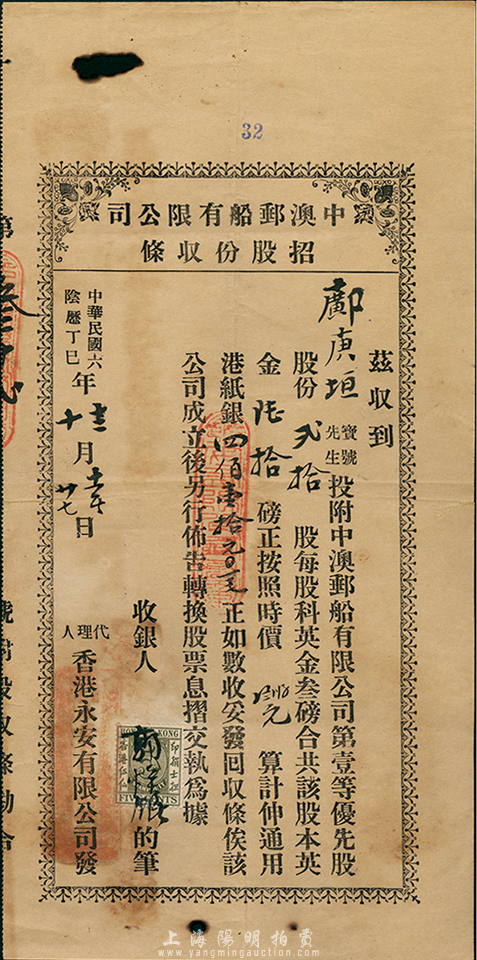 32
中澳郵船有限公司
招股份收條
茲收到
鄺庚垣 寶號先生 投附中澳郵船有限公司第壹等優先股
股份 弐拾 股每股科英金叁磅合共該股本英
金 陸拾 磅正按照時價 算計伸通用
港紙銀 四佰壹拾元〇 正如數收妥發回收條俟該
公司成立後另行佈告轉換股票息摺交執為據
收銀人 的筆
HONG KONG
FIVE CENTS
中華民國六
陰歷丁巳
年 十 月 廿七 日
代理人 香港永安有限公司發
第
號附股收條勘合
上海陽明拍賣
www.yangmingauction.com